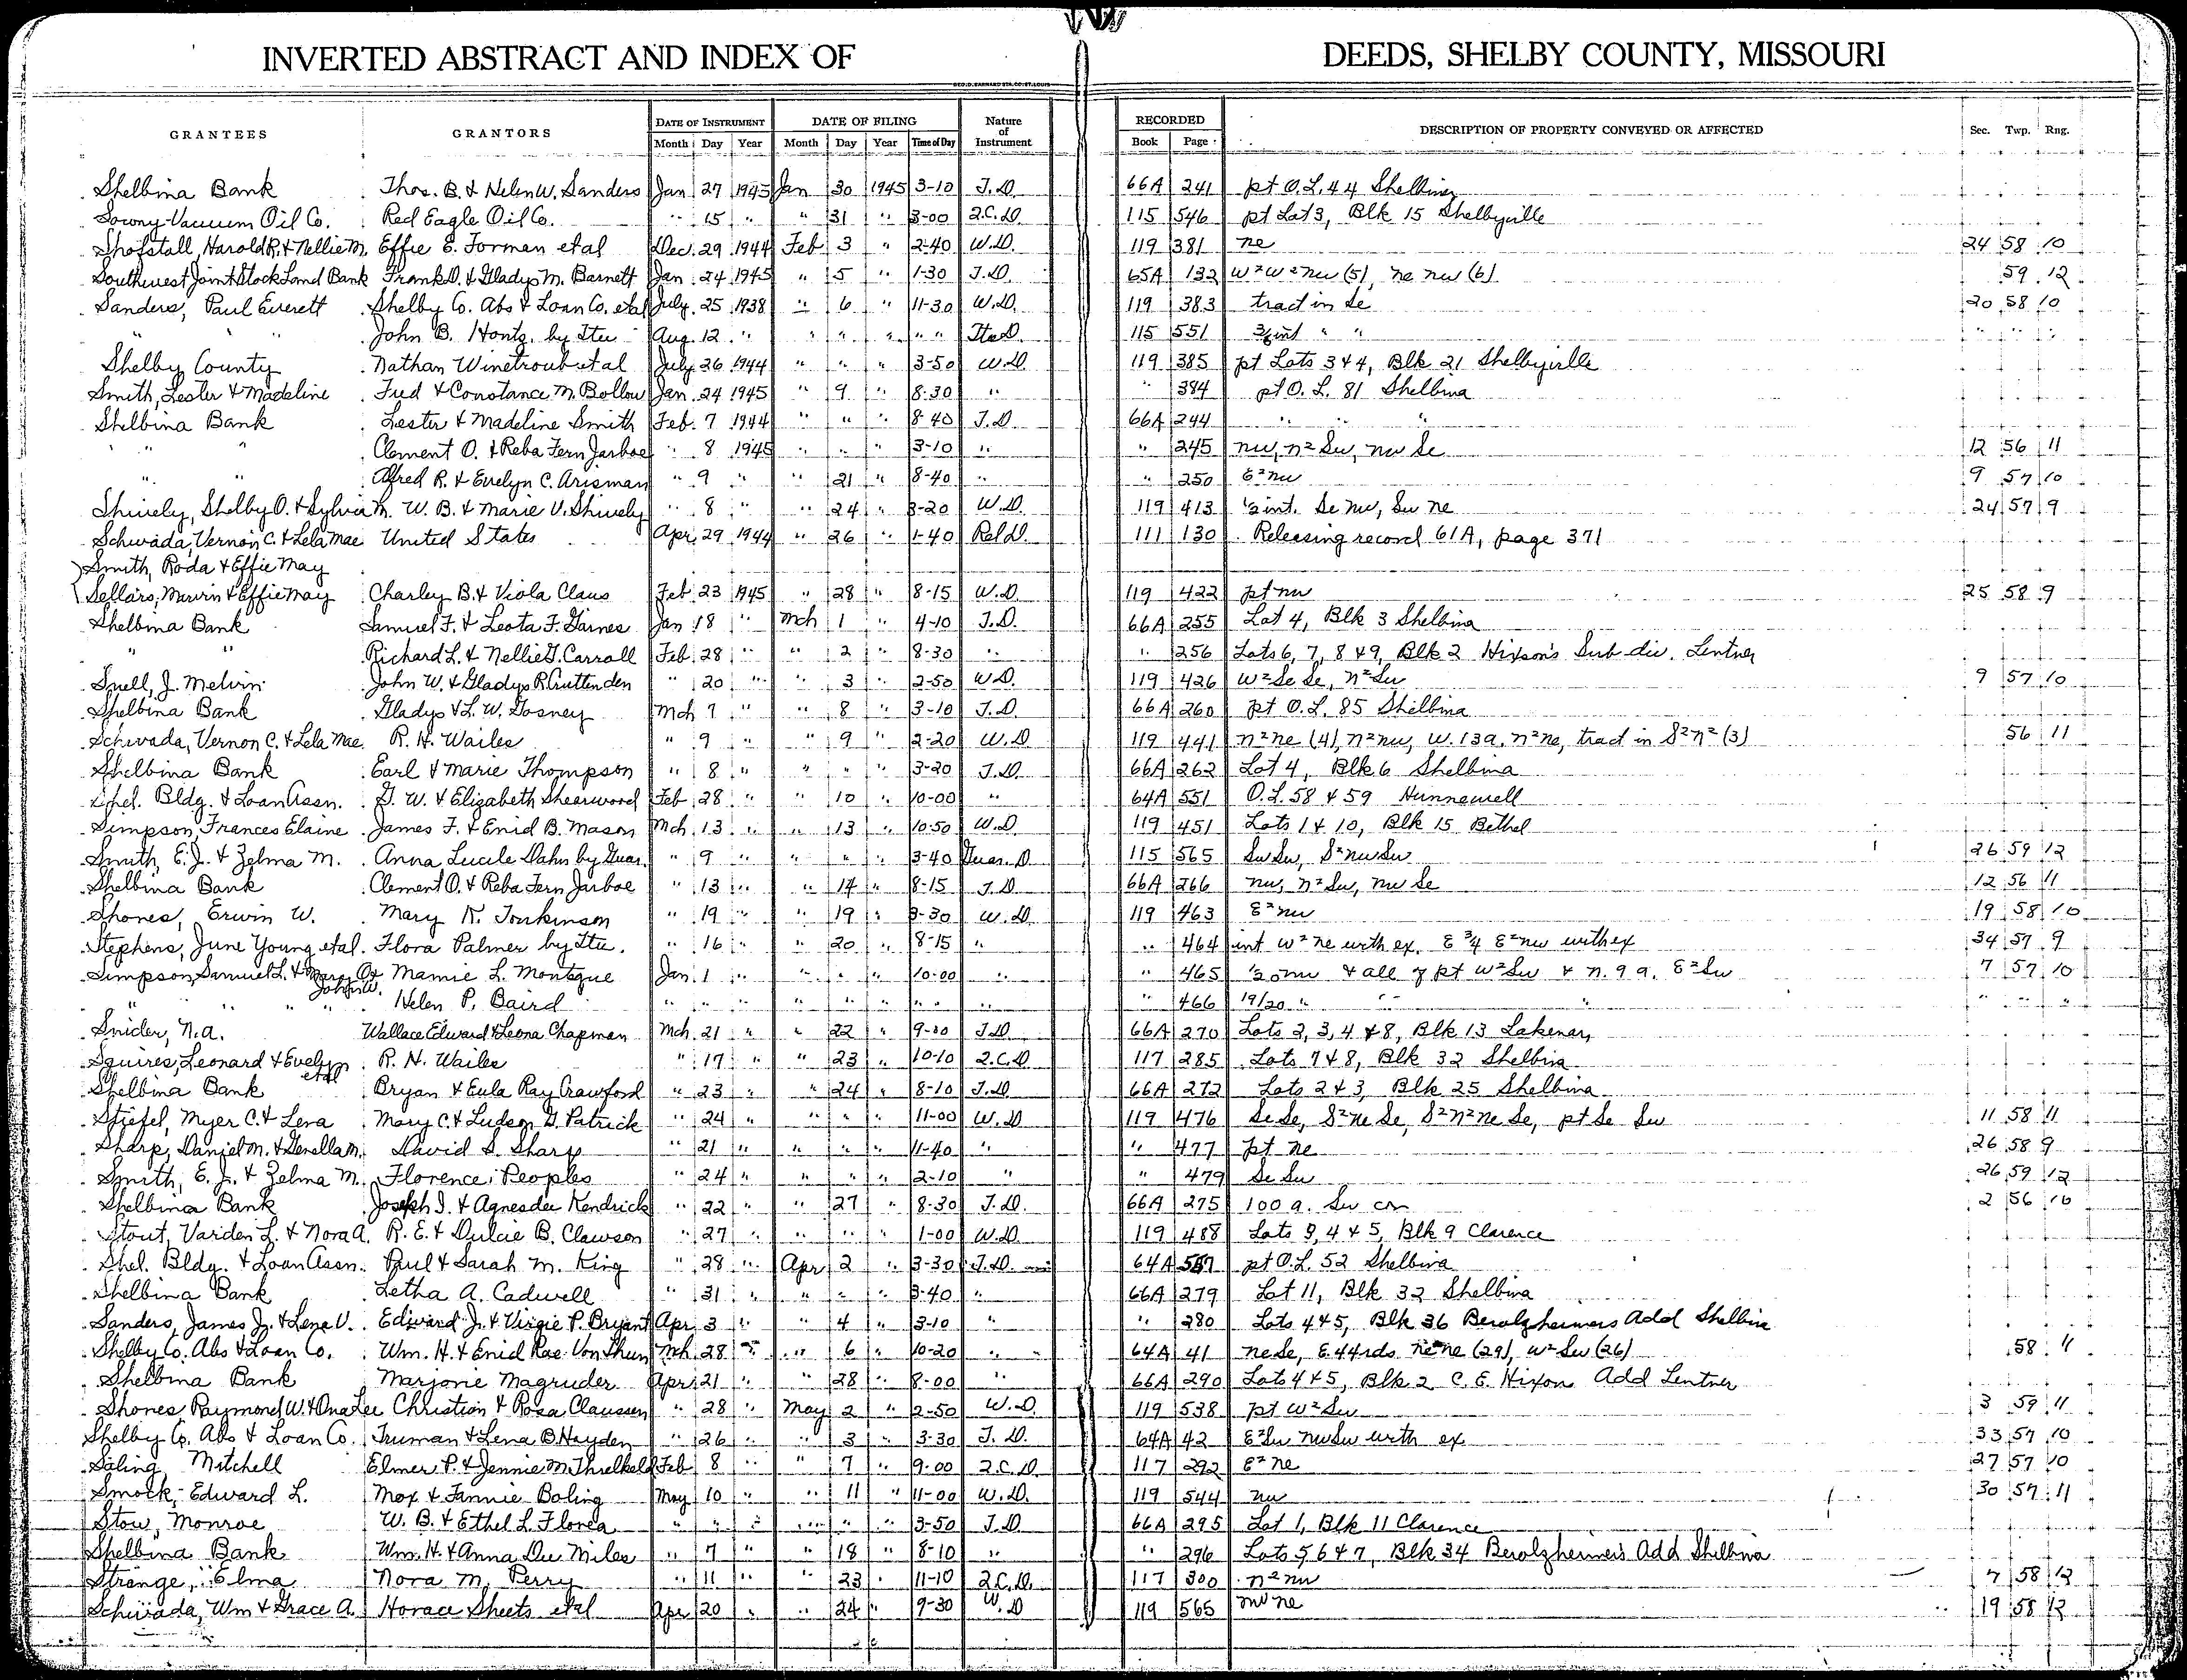 INVERTED ABSTRACT AND INDEX OF DEEDS, SHELBY COUNTY, MISSOURI
GRANTEES GRANTORS DATE OF INSTRUMENT DATE OF FILING Nature of Instrument RECORDED DESCRIPTION OF PROPERTY CONVEYED OR AFFECTED Sec. Twp. Rng.
Month Day Year Month Day Year Time of Day Book Page
Shelbina Bank Thos. B. & Helen W. Sanders Jan 27 1945 Jan 30 1945 3-10 T.D. 66A 241 pt O.L. 44 Shelbina
Socony-Vacuum Oil Co. Red Eagle Oil Co. " 15 " " 31 " 3-00 Q.C.D. 115 546 pt Lot 3, Blk 15 Shelbyville
Shofstall, Harold R. & Nellie M. Effie E. Forman et al Dec. 29 1944 Feb 3 " 2-40 W.D. 119 381 ne 24 58 10
Southwest Joint Stock Land Bank Frank D. & Gladys M. Barnett Jan 24 1945 " 5 " 1-30 T.D. 65A 132 W²W²nw (5), ne nw (6) 59 12
Sanders, Paul Everett Shelby Co. Abs & Loan Co. et al July 25 1938 " 6 " 11-30 W.D. 119 383 tract in Se 20 58 10
" " John B. Hontz, by Tte Aug. 12 " " " " " " Tte D. 115 551 int " " " " "
Shelby County Nathan Winetroub et al July 26 1944 " " " 3-50 W.D. 119 385 pt Lots 3 & 4, Blk 21 Shelbyville
Smith, Lester & Madeline Fred & Constance M. Bollow Jan. 24 1945 " 9 " 8-30 " " 384 pt O.L. 81 Shelbina
Shelbina Bank Lester & Madeline Smith Feb. 7 1944 " " " 8 40 T.D. 66A 244 " " "
" " Clement O. & Reba Fern Jarboe " 8 1945 " " " 3-10 " " 245 nw, n²Sw, nw Se 12 56 11
" " Alfred R. & Evelyn C. Arisman " 9 " " 21 " 8-40 " " 250 E²nw 9 57 10
Shively, Shelby O. & Sylvia M. W. B. & Marie V. Shively " 8 " " 24 " 3-20 W.D. 119 413 ½ int. Se nw, Sw ne 24 57 9
Schwada, Vernon C. & Lela Mae United States Apr. 29 1944 " 26 " 1-40 Rel D. 111 130 Releasing record 61A, page 371
Smith, Roda & Effie May
Sellars, Marvin & Effie May Charley B. & Viola Claus Feb 23 1945 " 28 " 8-15 W.D. 119 422 pt nw 25 58 9
Shelbina Bank Samuel F. & Leota F. Garnes Jan 18 " Mch 1 " 4-10 T.D. 66A 255 Lot 4, Blk 3 Shelbina
" " Richard L. & Nellie G. Carroll Feb. 28 " " 2 " 8-30 " " 256 Lots 6, 7, 8 & 9, Blk 2 Hixson's Sub-div. Lentner
Snell, J. Melvin John W. & Gladys R. Cruttenden " 20 " " 3 " 2-50 W.D. 119 426 W²Se Se, n²Sw 9 57 10
Shelbina Bank Gladys & L. W. Gosney Mch 7 " " 8 " 3-10 T.D. 66A 260 pt O.L. 85 Shelbina
Schwada, Vernon C. & Lela Mae R. H. Wailes " 9 " " 9 " 2-20 W.D. 119 441 n²ne (4), n²nw, W. 13a. n²ne, tract in S²n² (3) 56 11
Shelbina Bank Earl & Marie Thompson " 8 " " " " 3-20 T.D. 66A 262 Lot 4, Blk 6 Shelbina
Shel. Bldg. & Loan Assn. G. W. & Elizabeth Shearwood Feb 28 " " 10 " 10-00 " 64A 551 O.L. 58 & 59 Hunnewell
Simpson, Frances Elaine James F. & Enid B. Mason Mch. 13 " " 13 " 10-50 W.D. 119 451 Lots 1 & 10, Blk 15 Bethel
Smith, E. J. & Zelma M. Anna Lucile Dahn by Guar. " 9 " " " " 3-40 Guar. D. 115 565 Sw Sw, S²nw Sw 26 59 12
Shelbina Bank Clement O. & Reba Fern Jarboe " 13 " " 14 " 8-15 T.D. 66A 266 nw, n²Sw, nw Se 12 56 11
Shones, Erwin W. Mary K. Tonkinson " 19 " " 19 " 3-30 W.D. 119 463 E²nw 19 58 10
Stephens, June Young et al. Flora Palmer by Tte. " 16 " " 20 " 8-15 " " 464 int W²ne with ex. E ¾ E²nw with ex 34 57 9
Simpson, Samuel L. & Mary O. & John W. Mamie L. Montague Jan. 1 " " " " 10-00 " " 465 nw & all of pt W²Sw & n. 9 a. E²Sw 7 57 10
" " " " Helen P. Baird " " " " " " " " " 466 19/20 " " " " " "
Snider, N.A. Wallace Edward & Leona Chapman Mch. 21 " " 22 " 9-00 T.D. 66A 270 Lots 2, 3, 4 & 8, Blk 13 Lakenan
Squires, Leonard & Evelyn et al R. H. Wailes " 17 " " 23 " 10-10 Q.C.D. 117 285 Lots 7 & 8, Blk 32 Shelbina
Shelbina Bank Bryan & Eula Ray Crawford " 23 " " 24 " 8-10 T.D. 66A 272 Lots 2 & 3, Blk 25 Shelbina
Stiefel, Myer C. & Lera Mary C. & Ludson G. Patrick " 24 " " " " 11-00 W.D. 119 476 Se Se, S²ne Se, S²n²ne Se, pt Se Sw 11 58 11
Sharp, Daniel M. & Genella M. David S. Sharp " 21 " " " " 11-40 " " 477 pt ne 26 58 9
Smith, E. J. & Zelma M. Florence Peoples " 24 " " " " 2-10 " " 479 Se Sw 26 59 12
Shelbina Bank Joseph I. & Agnesdee Kendrick " 22 " " 27 " 8-30 T.D. 66A 275 100 a. Sw cn 2 56 10
Stout, Varden L. & Nora A. R. E. & Dulcie B. Clawson " 27 " " " " 1-00 W.D. 119 488 Lots 3, 4 & 5, Blk 9 Clarence
Shel. Bldg. & Loan Assn. Paul & Sarah M. King " 28 " Apr 2 " 3-30 T.D. 64A 557 pt O.L. 52 Shelbina
Shelbina Bank Letha A. Cadwell " 31 " " " " 3-40 " 66A 279 Lot 11, Blk 32 Shelbina
Sanders, James J. & Lena V. Edward J. & Virgie P. Bryant Apr 3 " " 4 " 3-10 " " 280 Lots 4 & 5, Blk 36 Berolzheimers Add Shelbina
Shelby Co. Abs & Loan Co. Wm. H. & Enid Rae Von Thun Mch. 28 " " 6 " 10-20 " 64A 41 ne Se, E. 44 rds. ne ne (29), W²Sw (26) 58 11
Shelbina Bank Marjorie Magruder Apr. 21 " " 28 " 8-00 " 66A 290 Lots 4 & 5, Blk 2 C. E. Hixon Add Lentner
Shones Raymond W. & Ona Lee Christian & Rosa Claussen " 28 " May 2 " 2-50 W.D. 119 538 pt W²Sw 3 59 11
Shelby Co. Abs & Loan Co. Truman & Lena B. Hayden " 26 " " 3 " 3-30 T.D. 64A 42 E²Sw nw Sw with ex 33 57 10
Saling, Mitchell Elmer P. & Jennie M. Threlkeld Feb 8 " " 7 " 9-00 Q.C.D. 117 292 E²ne 27 57 10
Smock, Edward L. Max & Fannie Boling May 10 " " 11 " 11-00 W.D. 119 544 nw 30 57 11
Stow, Monroe W. B. & Ethel L. Florea " " " " " " 3-50 T.D. 66A 295 Lot 1, Blk 11 Clarence
Shelbina Bank Wm. H. & Anna Dee Miles " 7 " " 18 " 8-10 " " 296 Lots 5 6 & 7, Blk 34 Berolzheimer's Add Shelbina
Strange, Elma Nora M. Perry " 11 " " 23 " 11-10 Q.C.D. 117 300 n²nw 7 58 12
Schwada, Wm & Grace A. Horace Sheets et al Apr 20 " " 24 " 9-30 W.D 119 565 nw ne 19 58 12